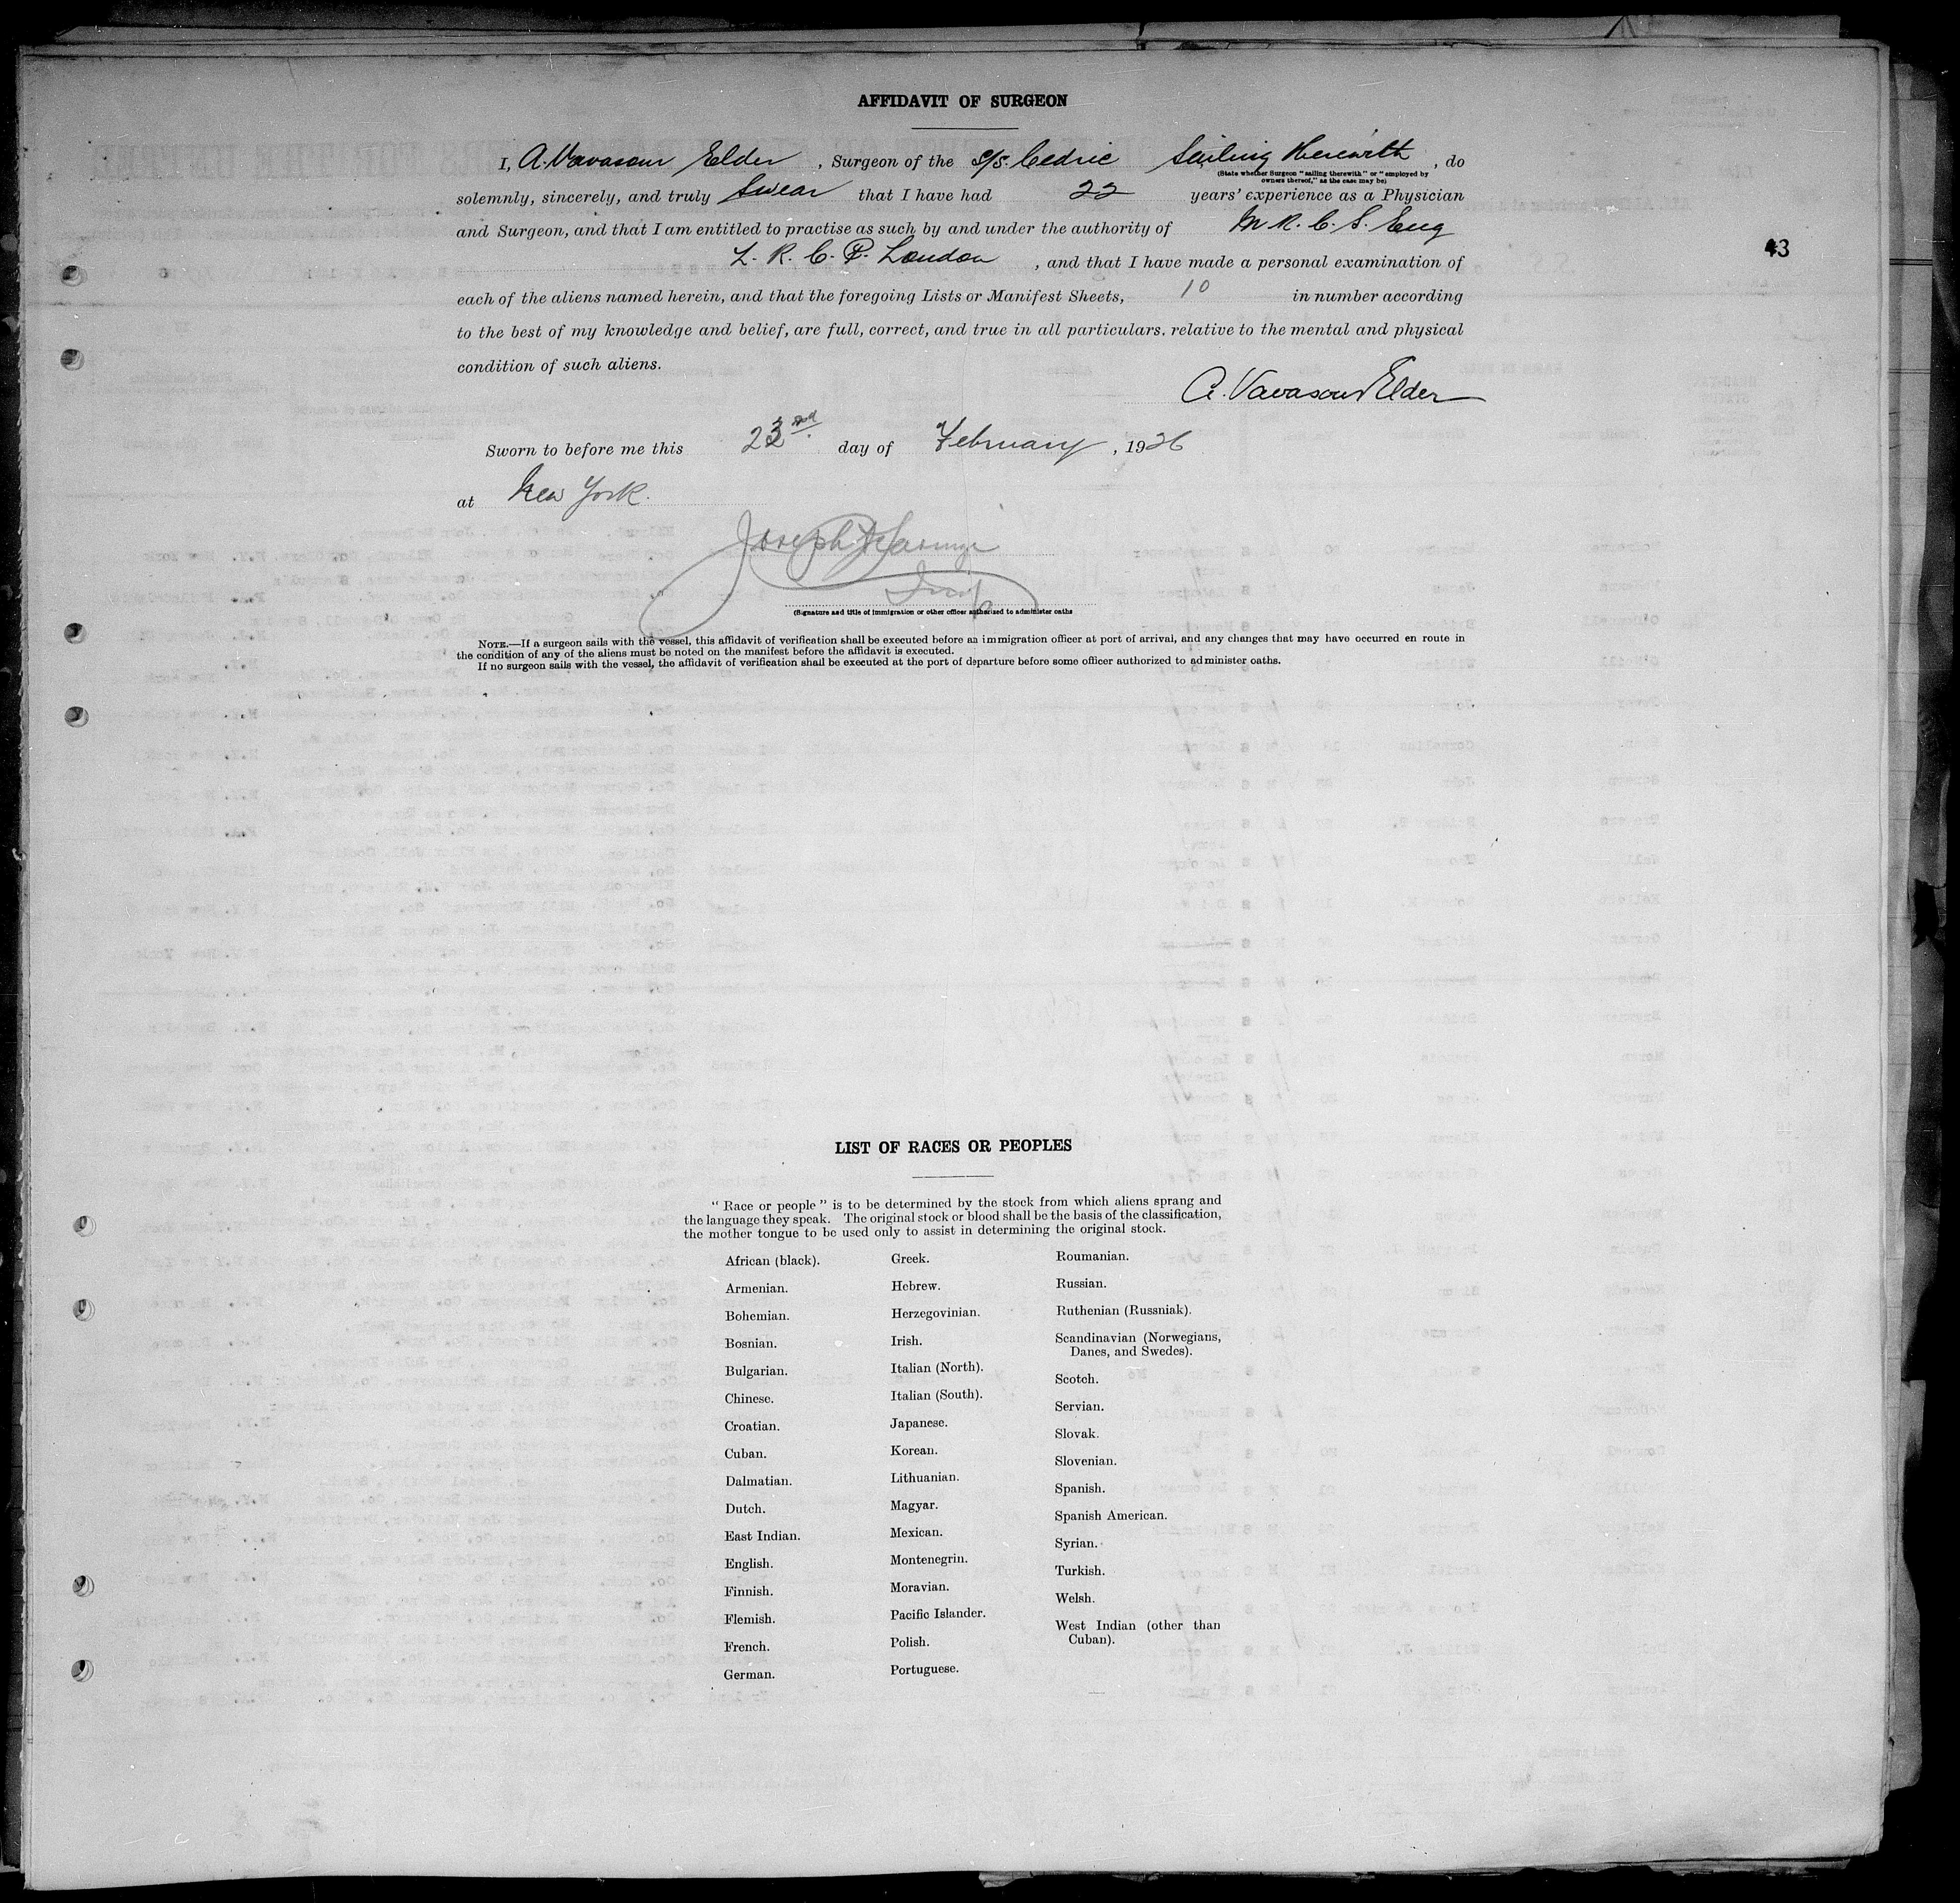 AFFIDAVIT OF SURGEON
I, A. Vavasour Elder, Surgeon of the S/S. Cedric Sailing Herewith, do
(State whether Surgeon "sailing therewith" or "employed by
owners thereof," as the case may be)
solemnly, sincerely, and truly Swear that I have had 22 years' experience as a Physician
and Surgeon, and that I am entitled to practise as such by and under the authority of M R. C. S. Eng
L. R. C. P. London, and that I have made a personal examination of
43
each of the aliens named herein, and that the foregoing Lists or Manifest Sheets, 10 in number according
to the best of my knowledge and belief, are full, correct, and true in all particulars. relative to the mental and physical
condition of such aliens.
A. Vavasour Elder
Sworn to before me this 23rd day of February, 1926
at New York.
Joseph
(Signature and title of immigration or other officer authorized to administer oaths
NOTE.—If a surgeon sails with the vessel, this affidavit of verification shall be executed before an immigration officer at port of arrival, and any changes that may have occurred en route in
the condition of any of the aliens must be noted on the manifest before the affidavit is executed.
If no surgeon sails with the vessel, the affidavit of verification shall be executed at the port of departure before some officer authorized to administer oaths.
LIST OF RACES OR PEOPLES
"Race or people" is to be determined by the stock from which aliens sprang and
the language they speak. The original stock or blood shall be the basis of the classification,
the mother tongue to be used only to assist in determining the original stock.
African (black).
Armenian.
Bohemian.
Bosnian.
Bulgarian.
Chinese.
Croatian.
Cuban.
Dalmatian.
Dutch.
East Indian.
English.
Finnish.
Flemish.
French.
German.
Greek.
Hebrew.
Herzegovinian.
Irish.
Italian (North).
Italian (South).
Japanese.
Korean.
Lithuanian.
Magyar.
Mexican.
Montenegrin.
Moravian.
Pacific Islander.
Polish.
Portuguese.
Roumanian.
Russian.
Ruthenian (Russniak).
Scandinavian (Norwegians,
Danes, and Swedes).
Scotch.
Servian.
Slovak.
Slovenian.
Spanish.
Spanish American.
Syrian.
Turkish.
Welsh.
West Indian (other than
Cuban).